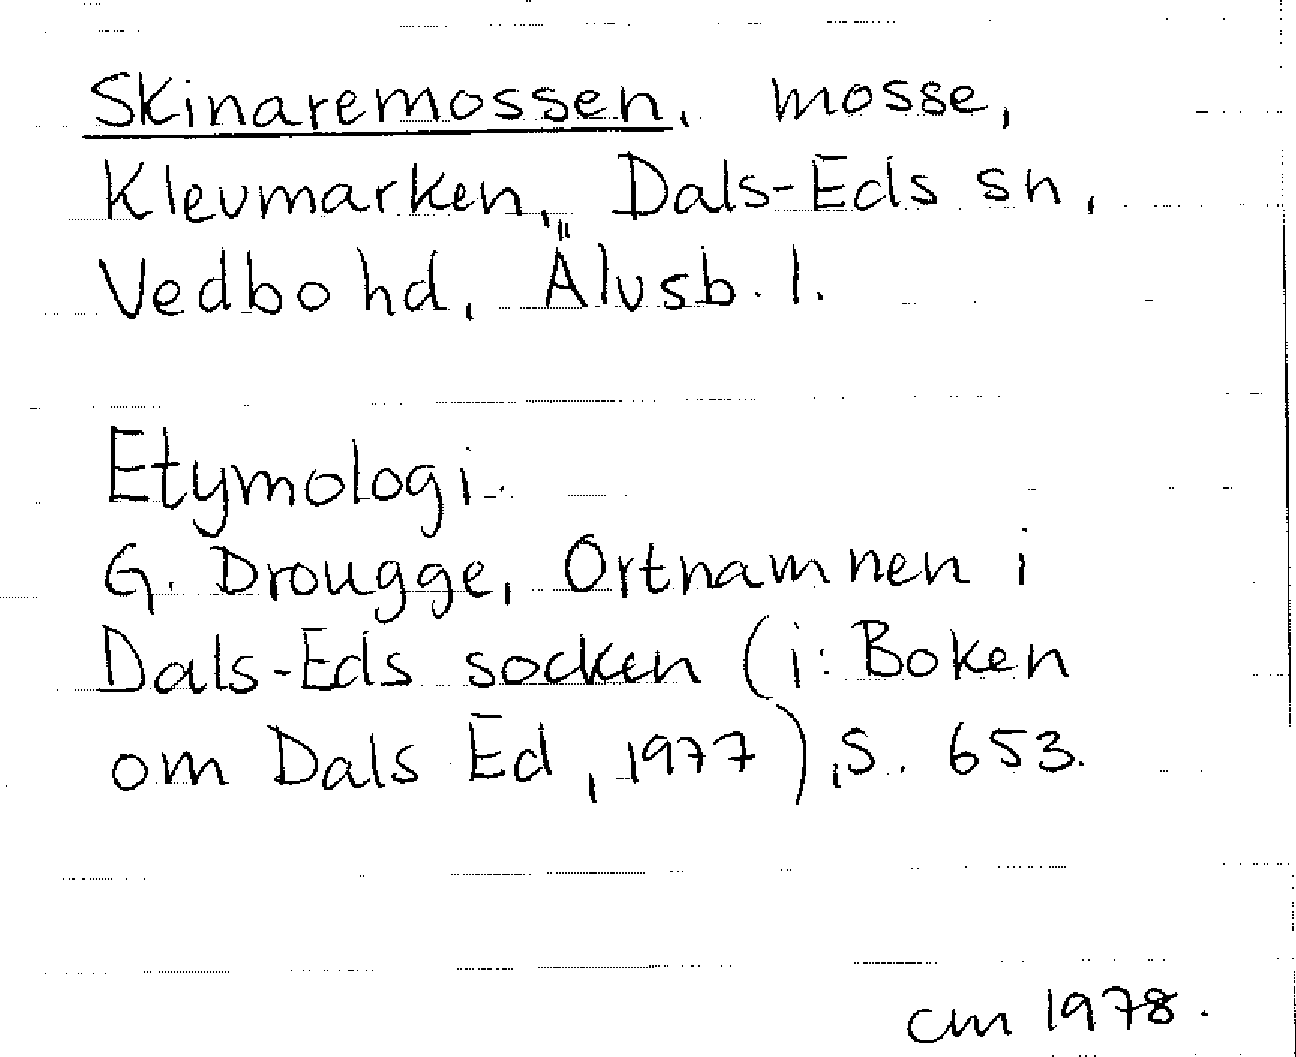 Skinaremossen, mosse,
Klevmarken, Dals-Eds sn,
Vedbo hd, Älvsb. l.
Etymologi.
G. Drougge, Ortnamnen i
Dals-Eds socken (i: Boken
om Dals Ed, 1977), S. 653.
cm 1978.